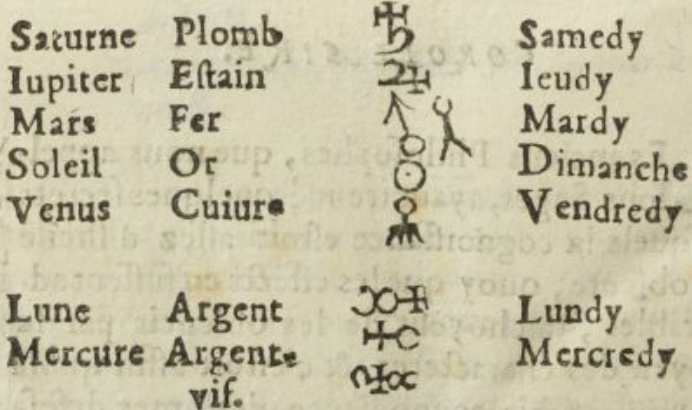 Saturne Plomb ♄ Samedy
Iupiter Eſtain ♃ Ieudy
Mars Fer Mardy
Soleil Or ☉ Dimanche
Venus Cuiure Vendredy
Lune Argent Lundy
Mercure Argent- Mercredy
vif.